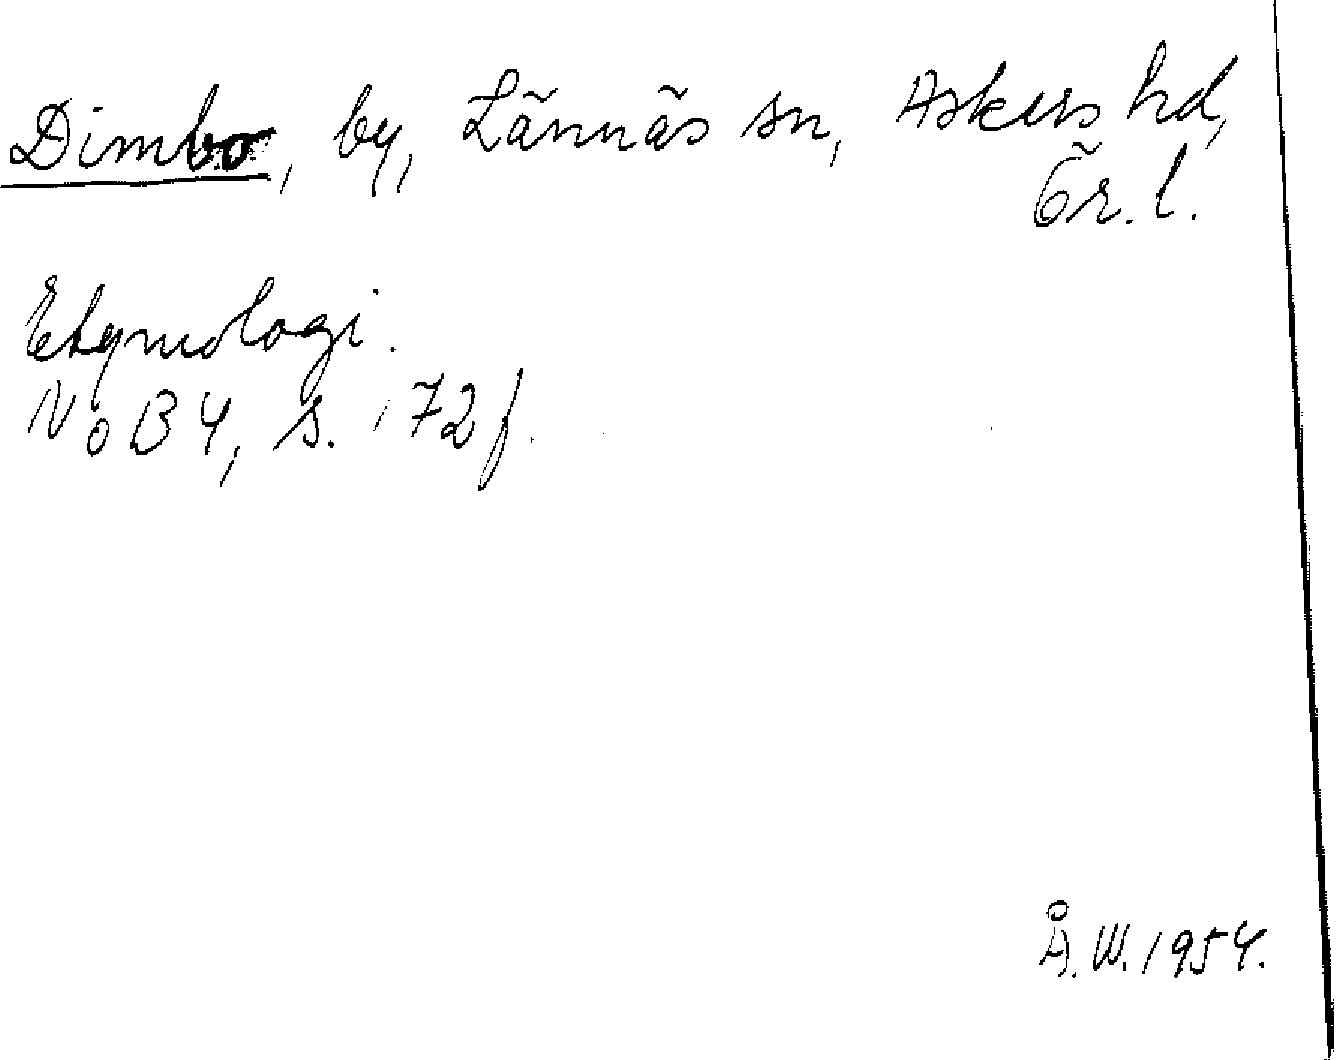 Dimbo, by, Lännäs sn, Askers hd,
Ör. l.
Etymologi.
NoB 4, s. 172 f.
Å. W. 1954.